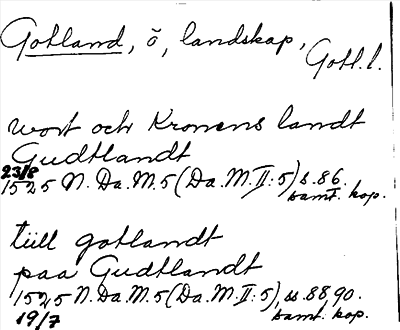 Gotland, ö, landskap,
Gotl. l.
wort och Kronens landt
Gudtlandt
23/8
1525 N. Da. M. 5 (Da. M. II: 5) s. 86.
samt. kop.
tiill gotlandt
paa Gudtlandt
1525 N. Da. M. 5 (Da. M. II: 5), ss. 88, 90.
19/7
samt. kop.